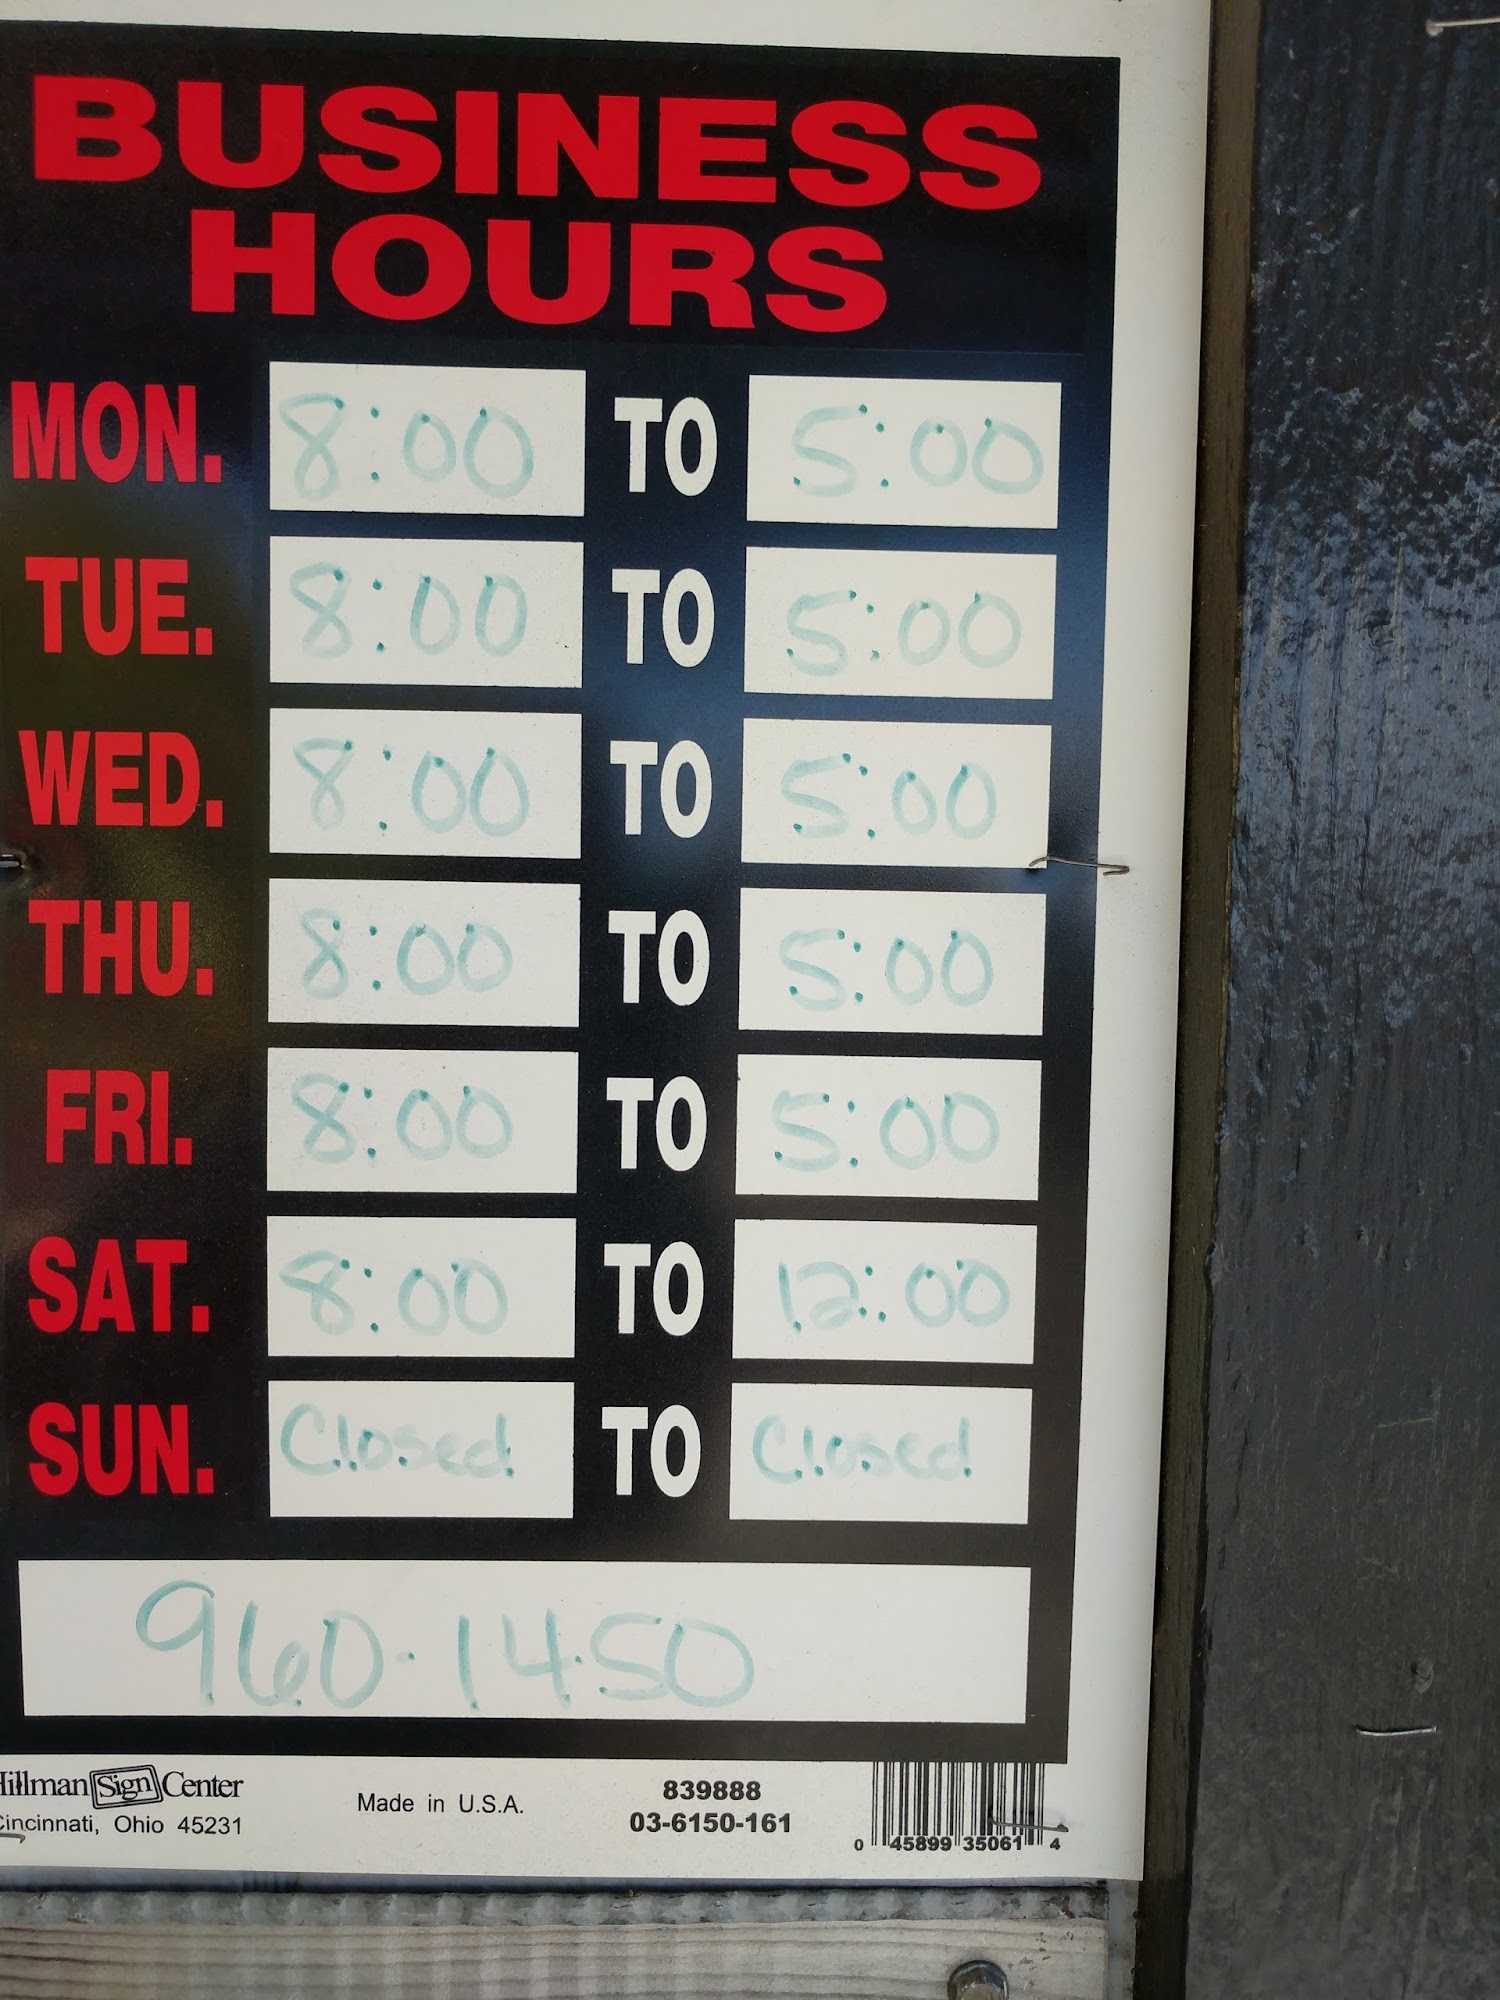 BUSINESS
HOURS
MON. 8:00 TO 5:00
TUE. 8:00 TO 5:00
WED. 8:00 TO 5:00
THU. 8:00 TO 5:00
FRI. 8:00 TO 5:00
SAT. 8:00 TO 12:00
SUN. Closed TO Closed
960.1450
Hillman Sign Center
Cincinnati, Ohio 45231
Made in U.S.A.
839888
03-6150-161
0 45899 35061 4